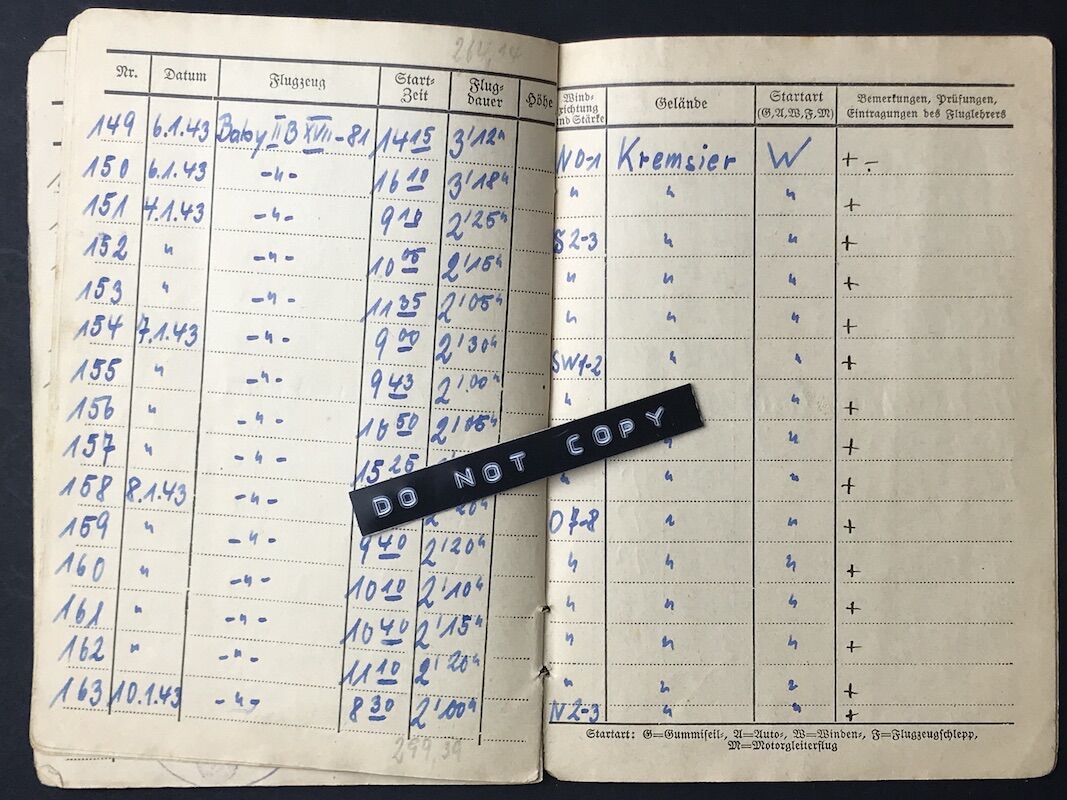 264,14
Nr. Datum Flugzeug Start-Zeit Flug-dauer Höhe Wind-richtung und Stärke Gelände Startart (G, A, W, F, M) Bemerkungen, Prüfungen, Eintragungen des Fluglehrers
149 6.1.43 Baby II B XVII-81 14 15 3'12" N 0-1 Kremsier W + -
150 6.1.43 -"- 16 10 3'18" " " +
151 4.1.43 -"- 9 10 2'25" S 2-3 " " +
152 " -"- 10 05 2'15" " " " +
153 " -"- 11 35 2'05" " " " +
154 7.1.43 -"- 9 00 2'30" SW 1-2 " " +
155 " -"- 9 43 2'00" " " +
156 " -"- 10 50 2'05" " " +
157 " -"- 15 25 " " +
158 8.1.43 -"- 2'20" O 7-8 " " +
159 " -"- 9 40 2'20" " " " +
160 " -"- 10 10 2'10" " " " +
161 " -"- 10 40 2'15" " " " +
162 " -"- 11 10 2'20" " " " +
163 10.1.43 -"- 8 30 2'00" N 2-3 " " +
DO NOT COPY
299,39
Startart: G=Gummiseil-, A=Auto-, W=Winden-, F=Flugzeugschlepp,
M=Motorgleiterflug